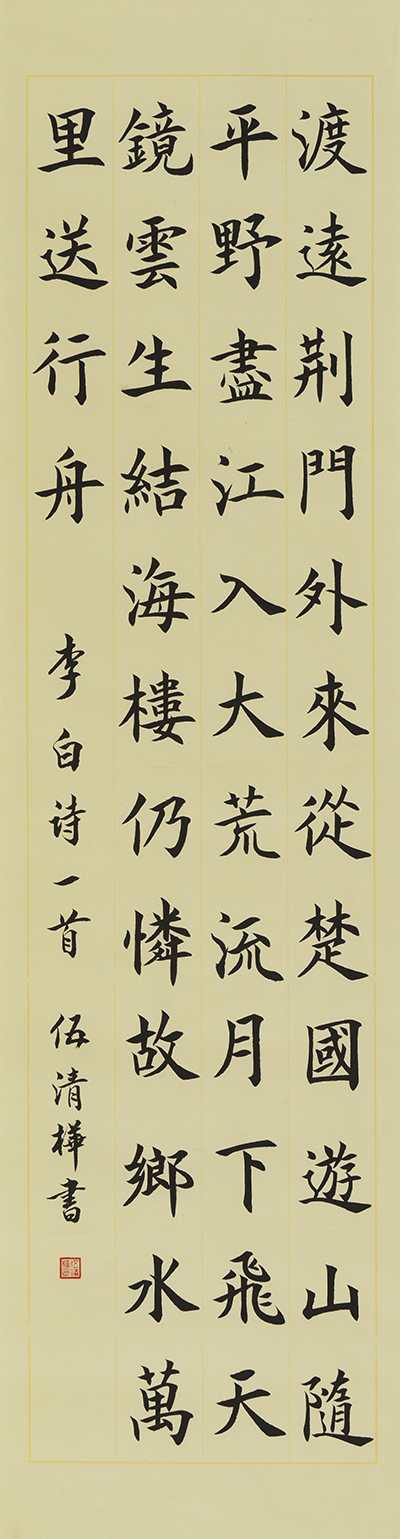 渡遠荆門外來從楚國遊山隨
平野盡江入大荒流月下飛天
鏡雲生結海樓仍憐故鄉水萬
里送行舟
李白诗一首 伍清樺書